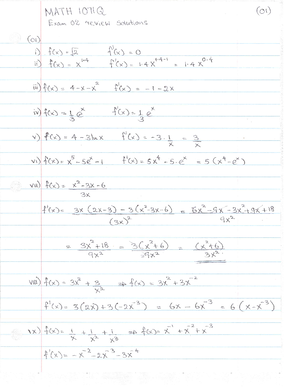 MATH 1071Q (01)
Exam 02 review solutions
i) f(x) = √2 f'(x) = 0
ii) f(x) = x^1.4 f'(x) = 1.4x^0.4-1 = 1.4x^0.4
iii) f(x) = 4-x-x² f'(x) = -1-2x
iv) f(x) = 1/3 e^x f'(x) = 1/3 e^x
v) f(x) = 4-3lnx f'(x) = -3·1/x = 3/x
vi) f(x) = x⁵-5e^x-1 f'(x) = 5x⁴-5·e^x = 5(x⁴-e^x)
vii) f(x) = x²-3x-6 / 3x
f'(x) = 3x(2x-3)-3(x²-3x-6) / (3x)² = 6x²-9x-3x²+9x+18 / 9x²
= 3x²+18 / 9x² = 3(x²+6) / 9x² = (x²+6) / 3x²
viii) f(x) = 3x² + 3/x² ⇒ f(x) = 3x²+3x^-2
f'(x) = 3(2x)+3(-2x^-3) = 6x-6x^-3 = 6(x-x^-3)
ix) f(x) = 1/x + 1/x² + 1/x³ ⇒ f(x) = x^-1+x^-2+x^-3
f'(x) = -x^-2-2x^-3-3x^-4